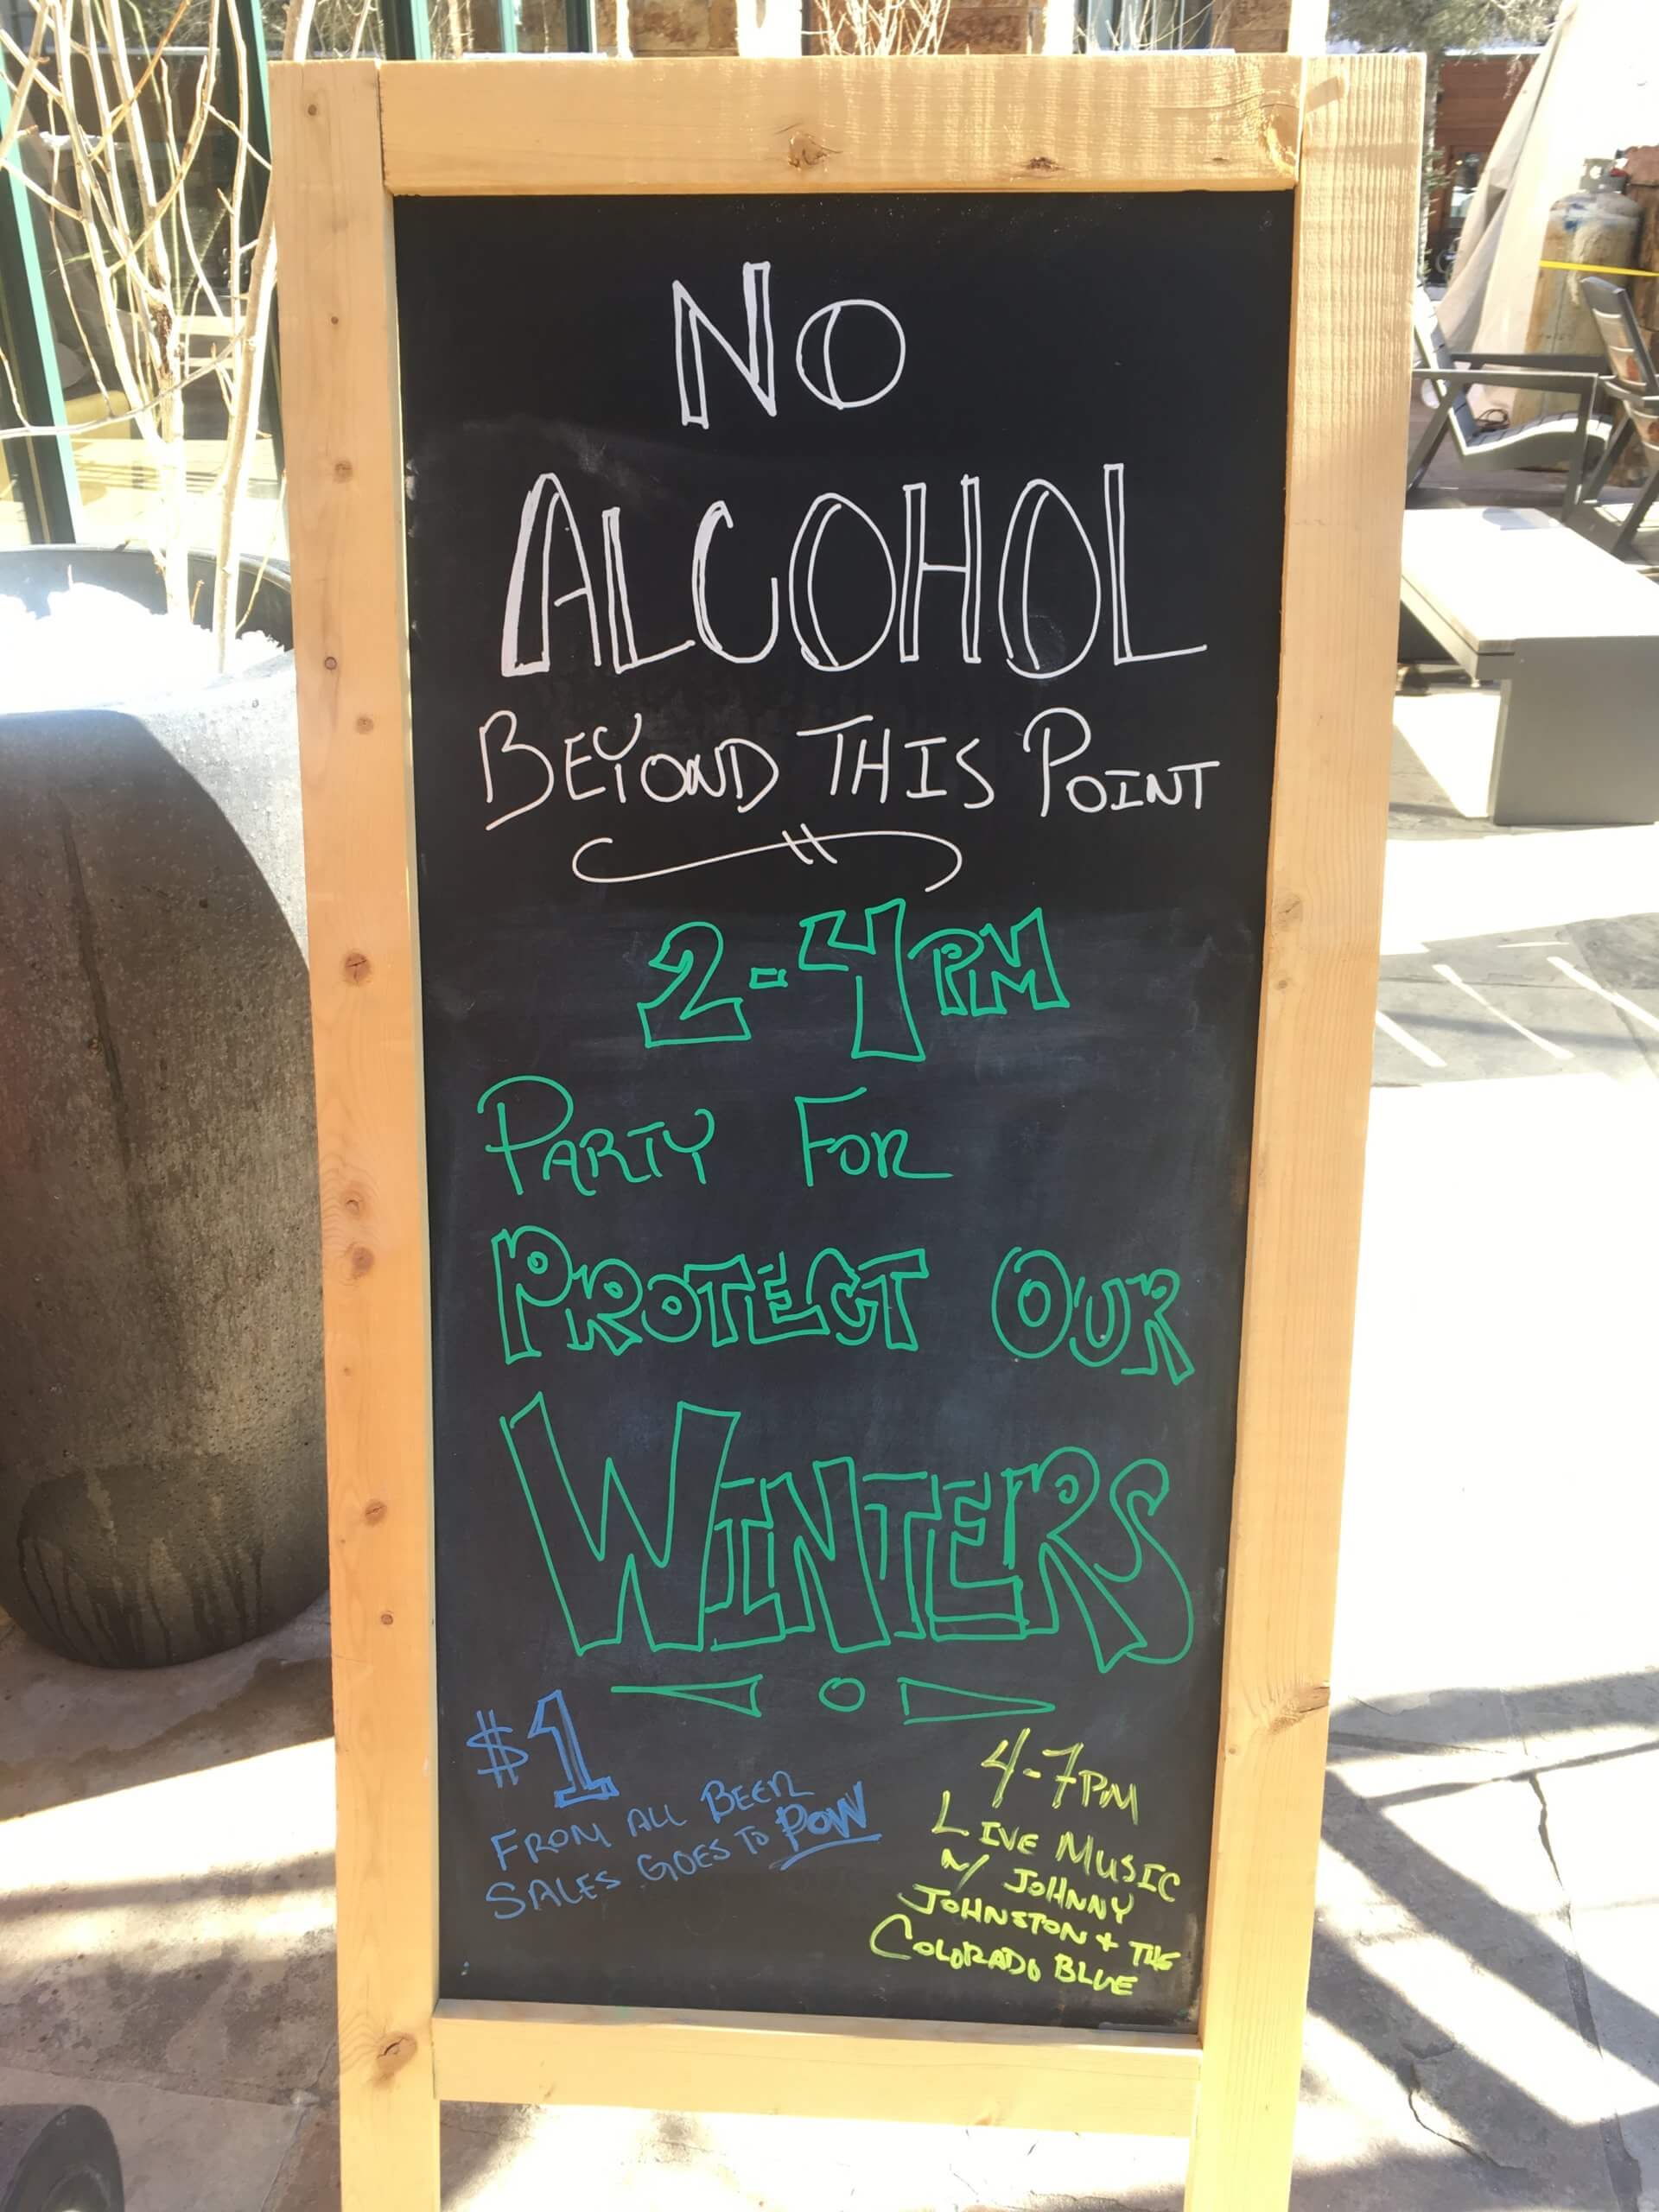 NO
ALCOHOL
BEYOND THIS POINT
2-4PM
PARTY FOR
PROTECT OUR
WINTERS
$1
FROM ALL BEER
SALES GOES TO POW
4-7PM
LIVE MUSIC
W/ JOHNNY
JOHNSTON + THE
COLORADO BLUE